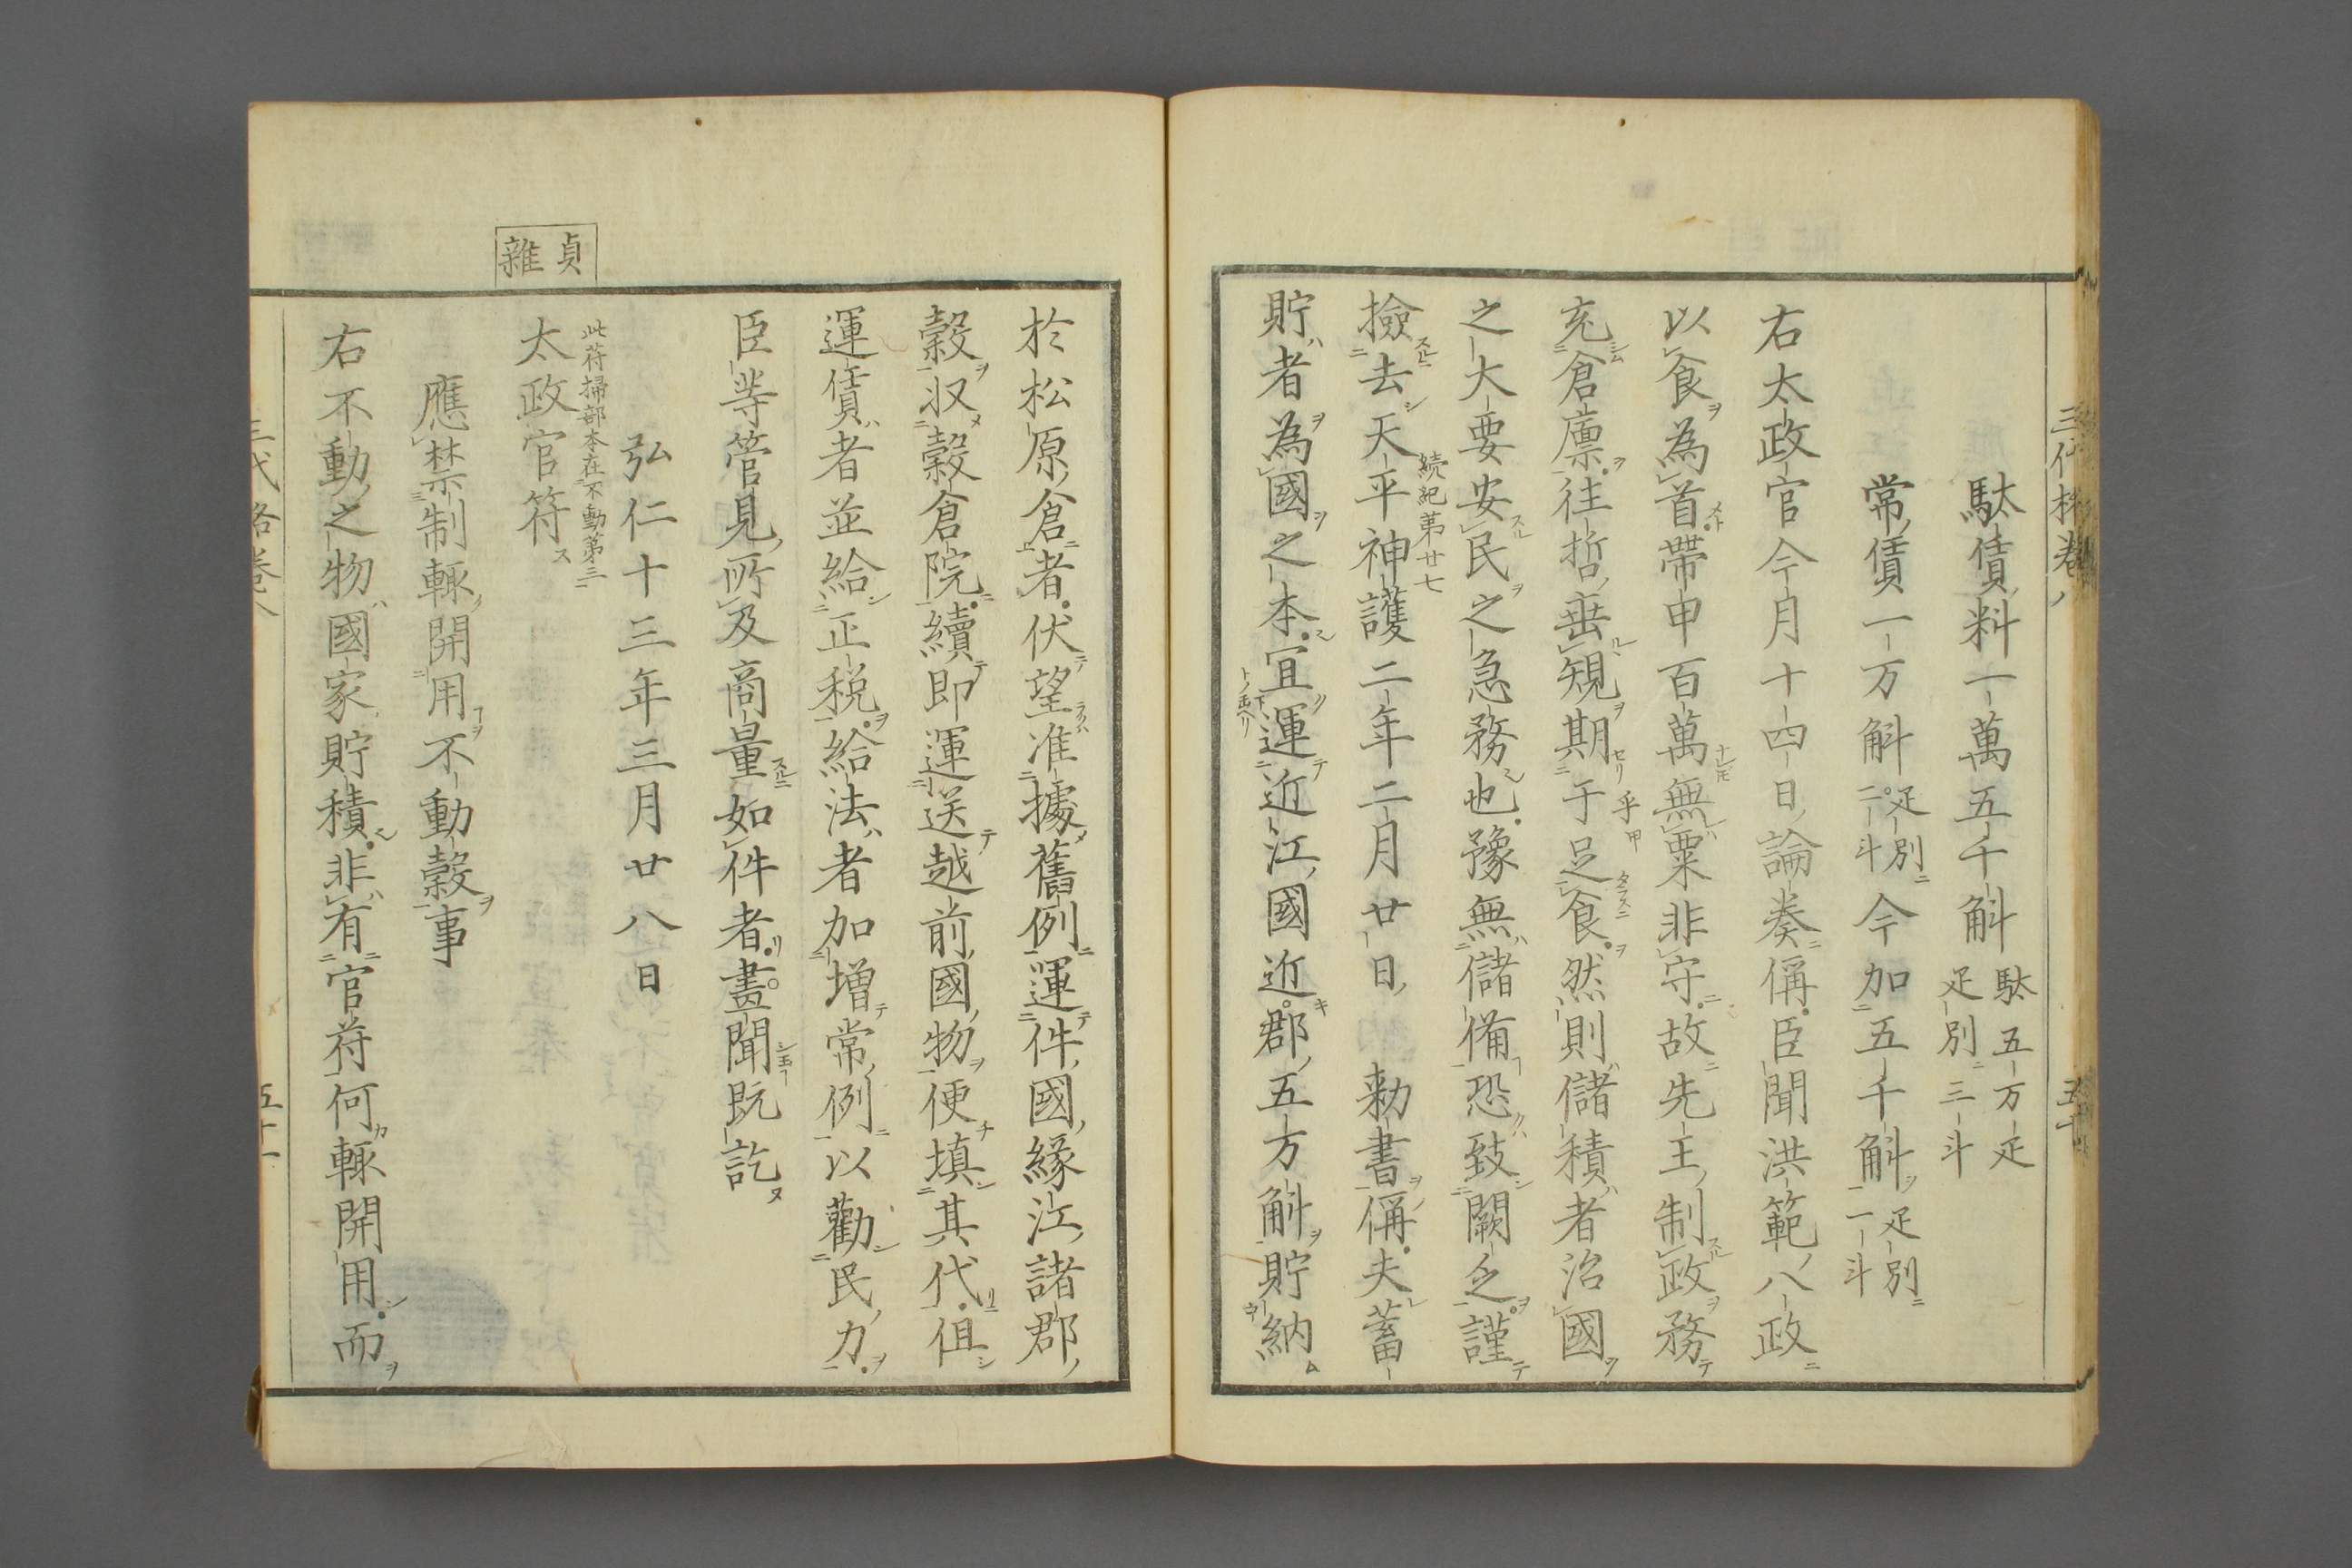 駄賃料一萬五千斛 駄五万疋 疋別三斗
常賃一万斛 疋別二斗 今加五千斛 疋別一斗
右太政官今月十四日論奏偁臣聞洪範八政
以食為首帶甲百萬無粟非守故先王制政務
充倉廩往哲垂規期于足食然則儲積者治國
之大要安民之急務也豫無儲備恐致闕乏謹
撿去天平神護二年二月廿日勅書偁夫蓄
続紀第廿七
貯者為國之本宜運近江國近郡五万斛貯納
於松原倉者伏望准據舊例運件國緣江諸郡
穀収穀倉院續即運送越前國物便填其代但
運賃者並給正税給法者加増常例以勸民力
臣等管見所及商量如件者畫聞既訖
弘仁十三年三月廿八日
此符掃部本在不動第三
太政官符
貞雜
應禁制輙開用不動穀事
右不動之物國家貯積非有官符何輙開用而
三代格卷八
五十一